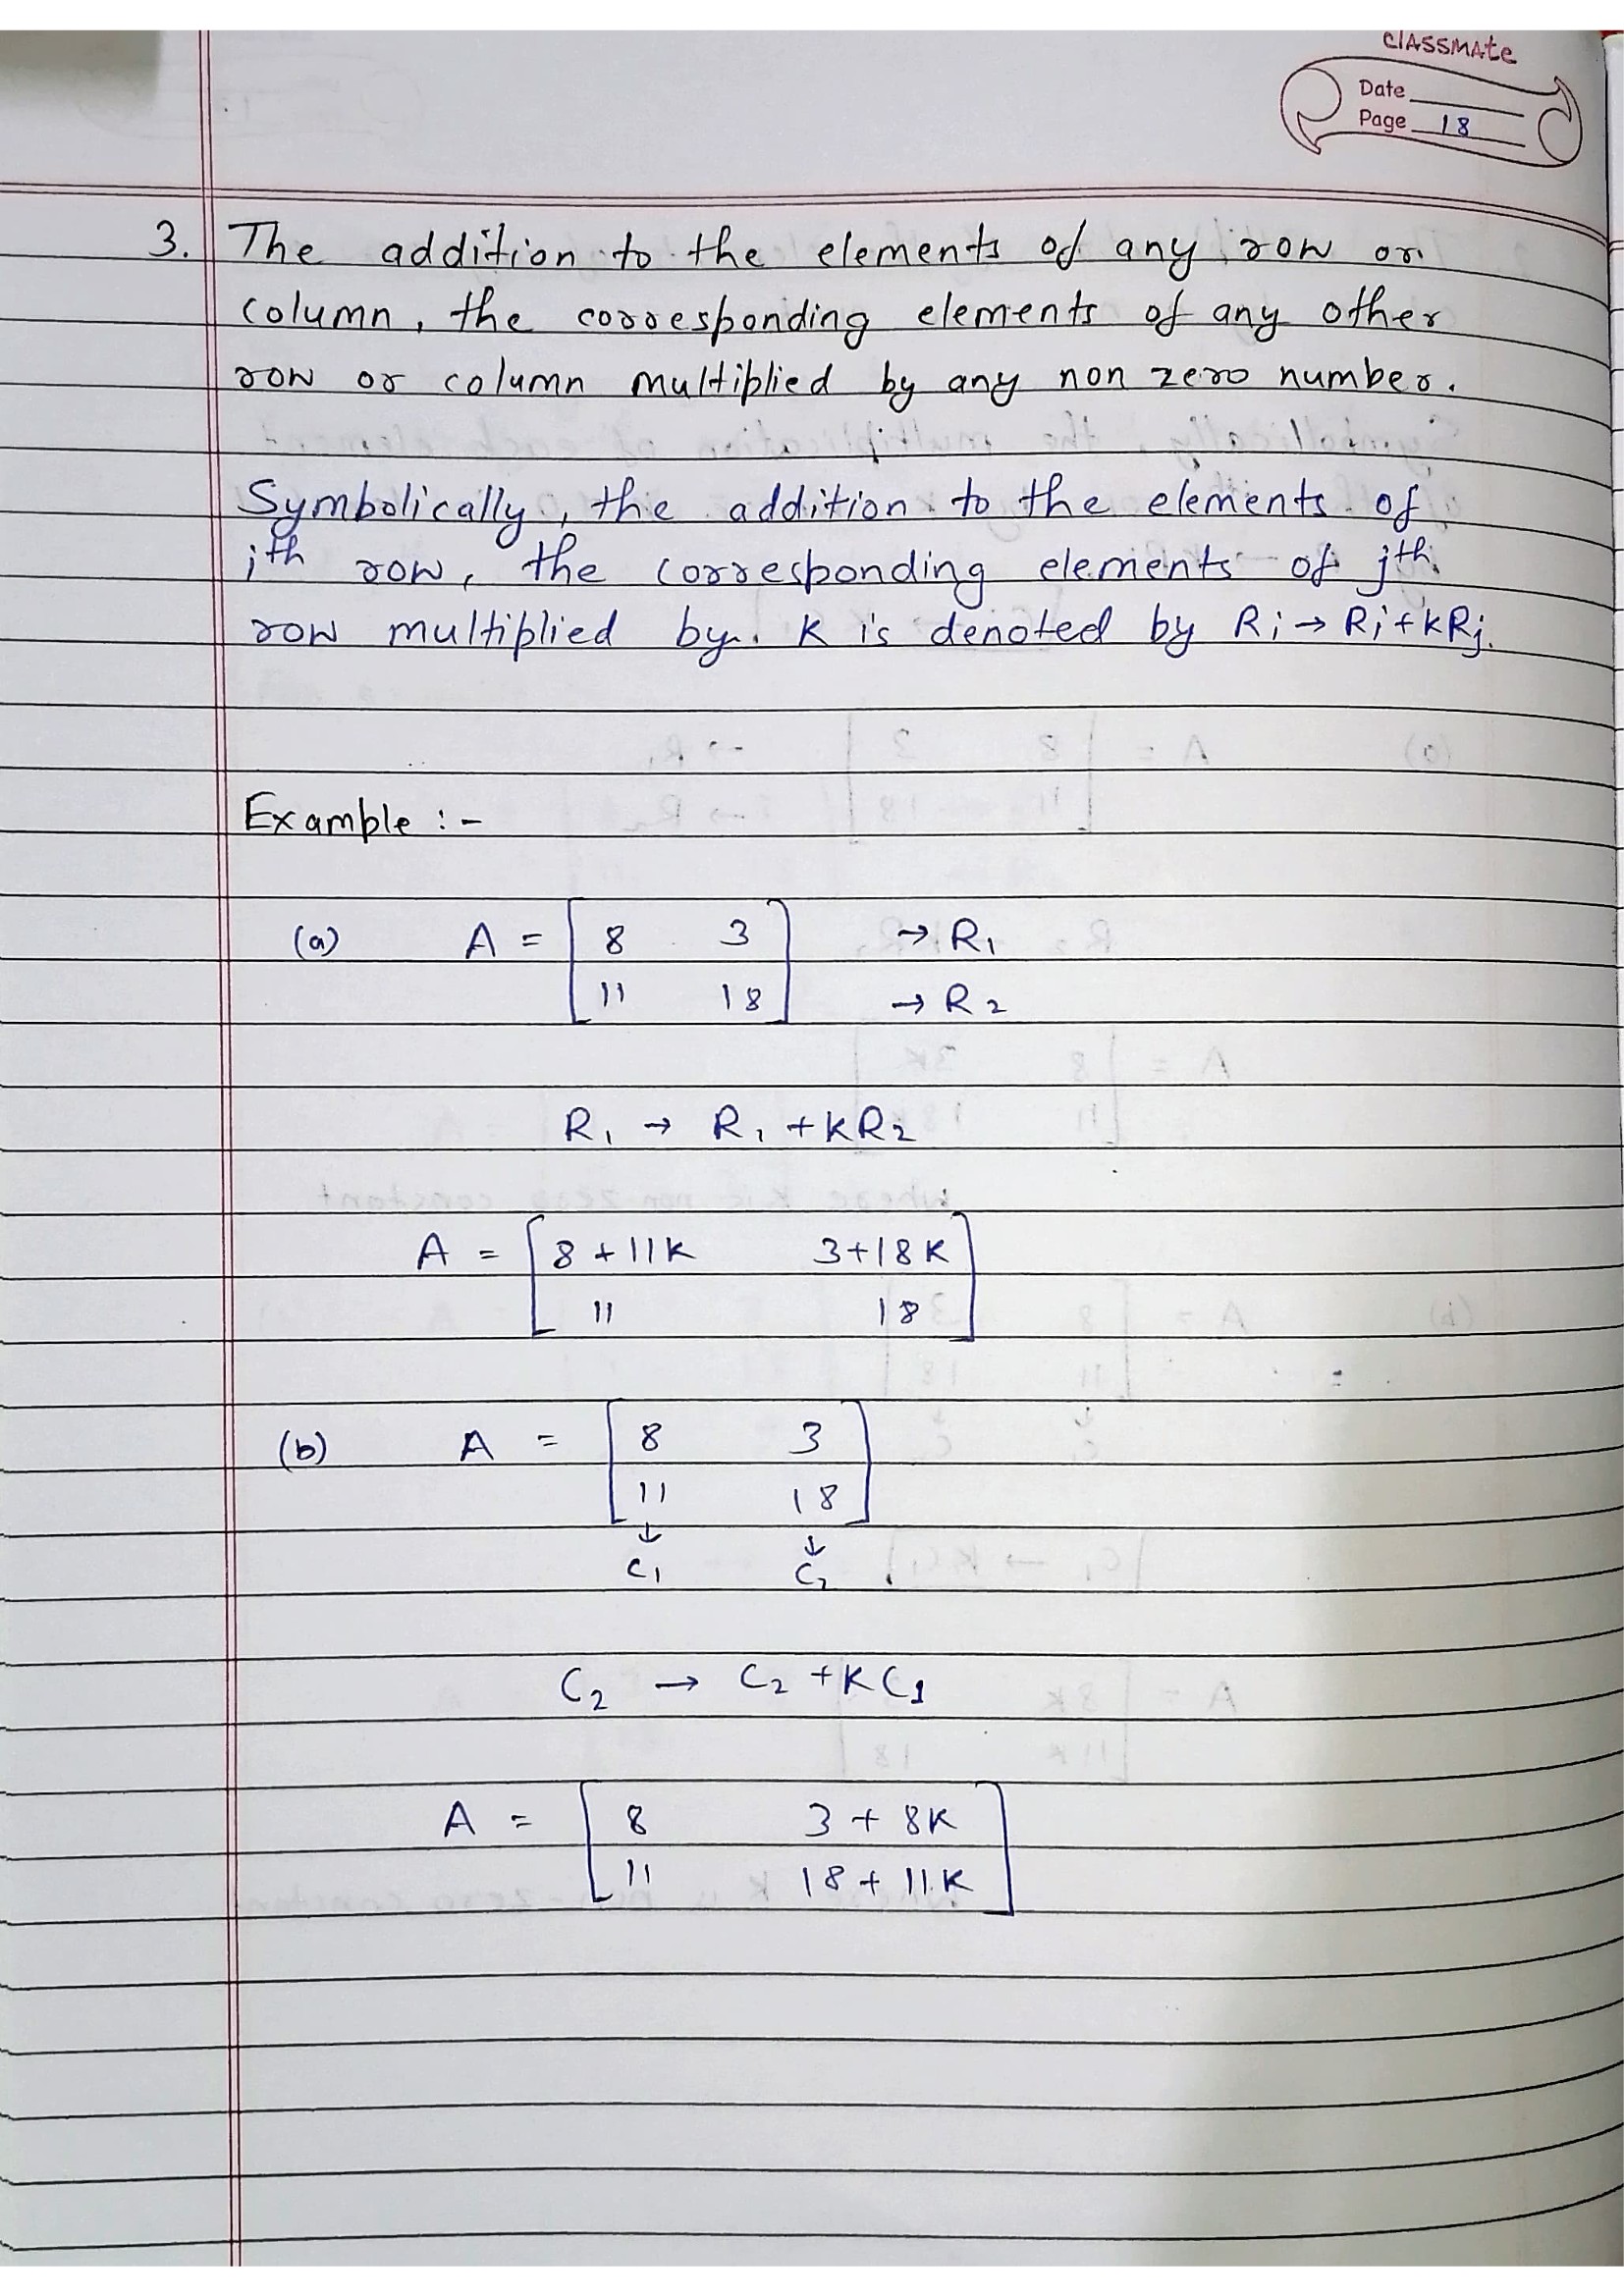 classmate
Date
Page 18
3. The addition to the elements of any row or
column, the corresponding elements of any other
row or column multiplied by any non zero number.
Symbolically, the addition to the elements of
ith row, the corresponding elements of jth
row multiplied by K is denoted by Ri → Ri + kRj.
Example :-
(a) A = [ 8 3 ] → R1
[ 11 18 ] → R2
R1 → R1 + kR2
A = [ 8 + 11K 3+18K ]
[ 11 18 ]
(b) A = [ 8 3 ]
[ 11 18 ]
↓ ↓
C1 C2
C2 → C2 + KC1
A = [ 8 3 + 8K ]
[ 11 18 + 11K ]